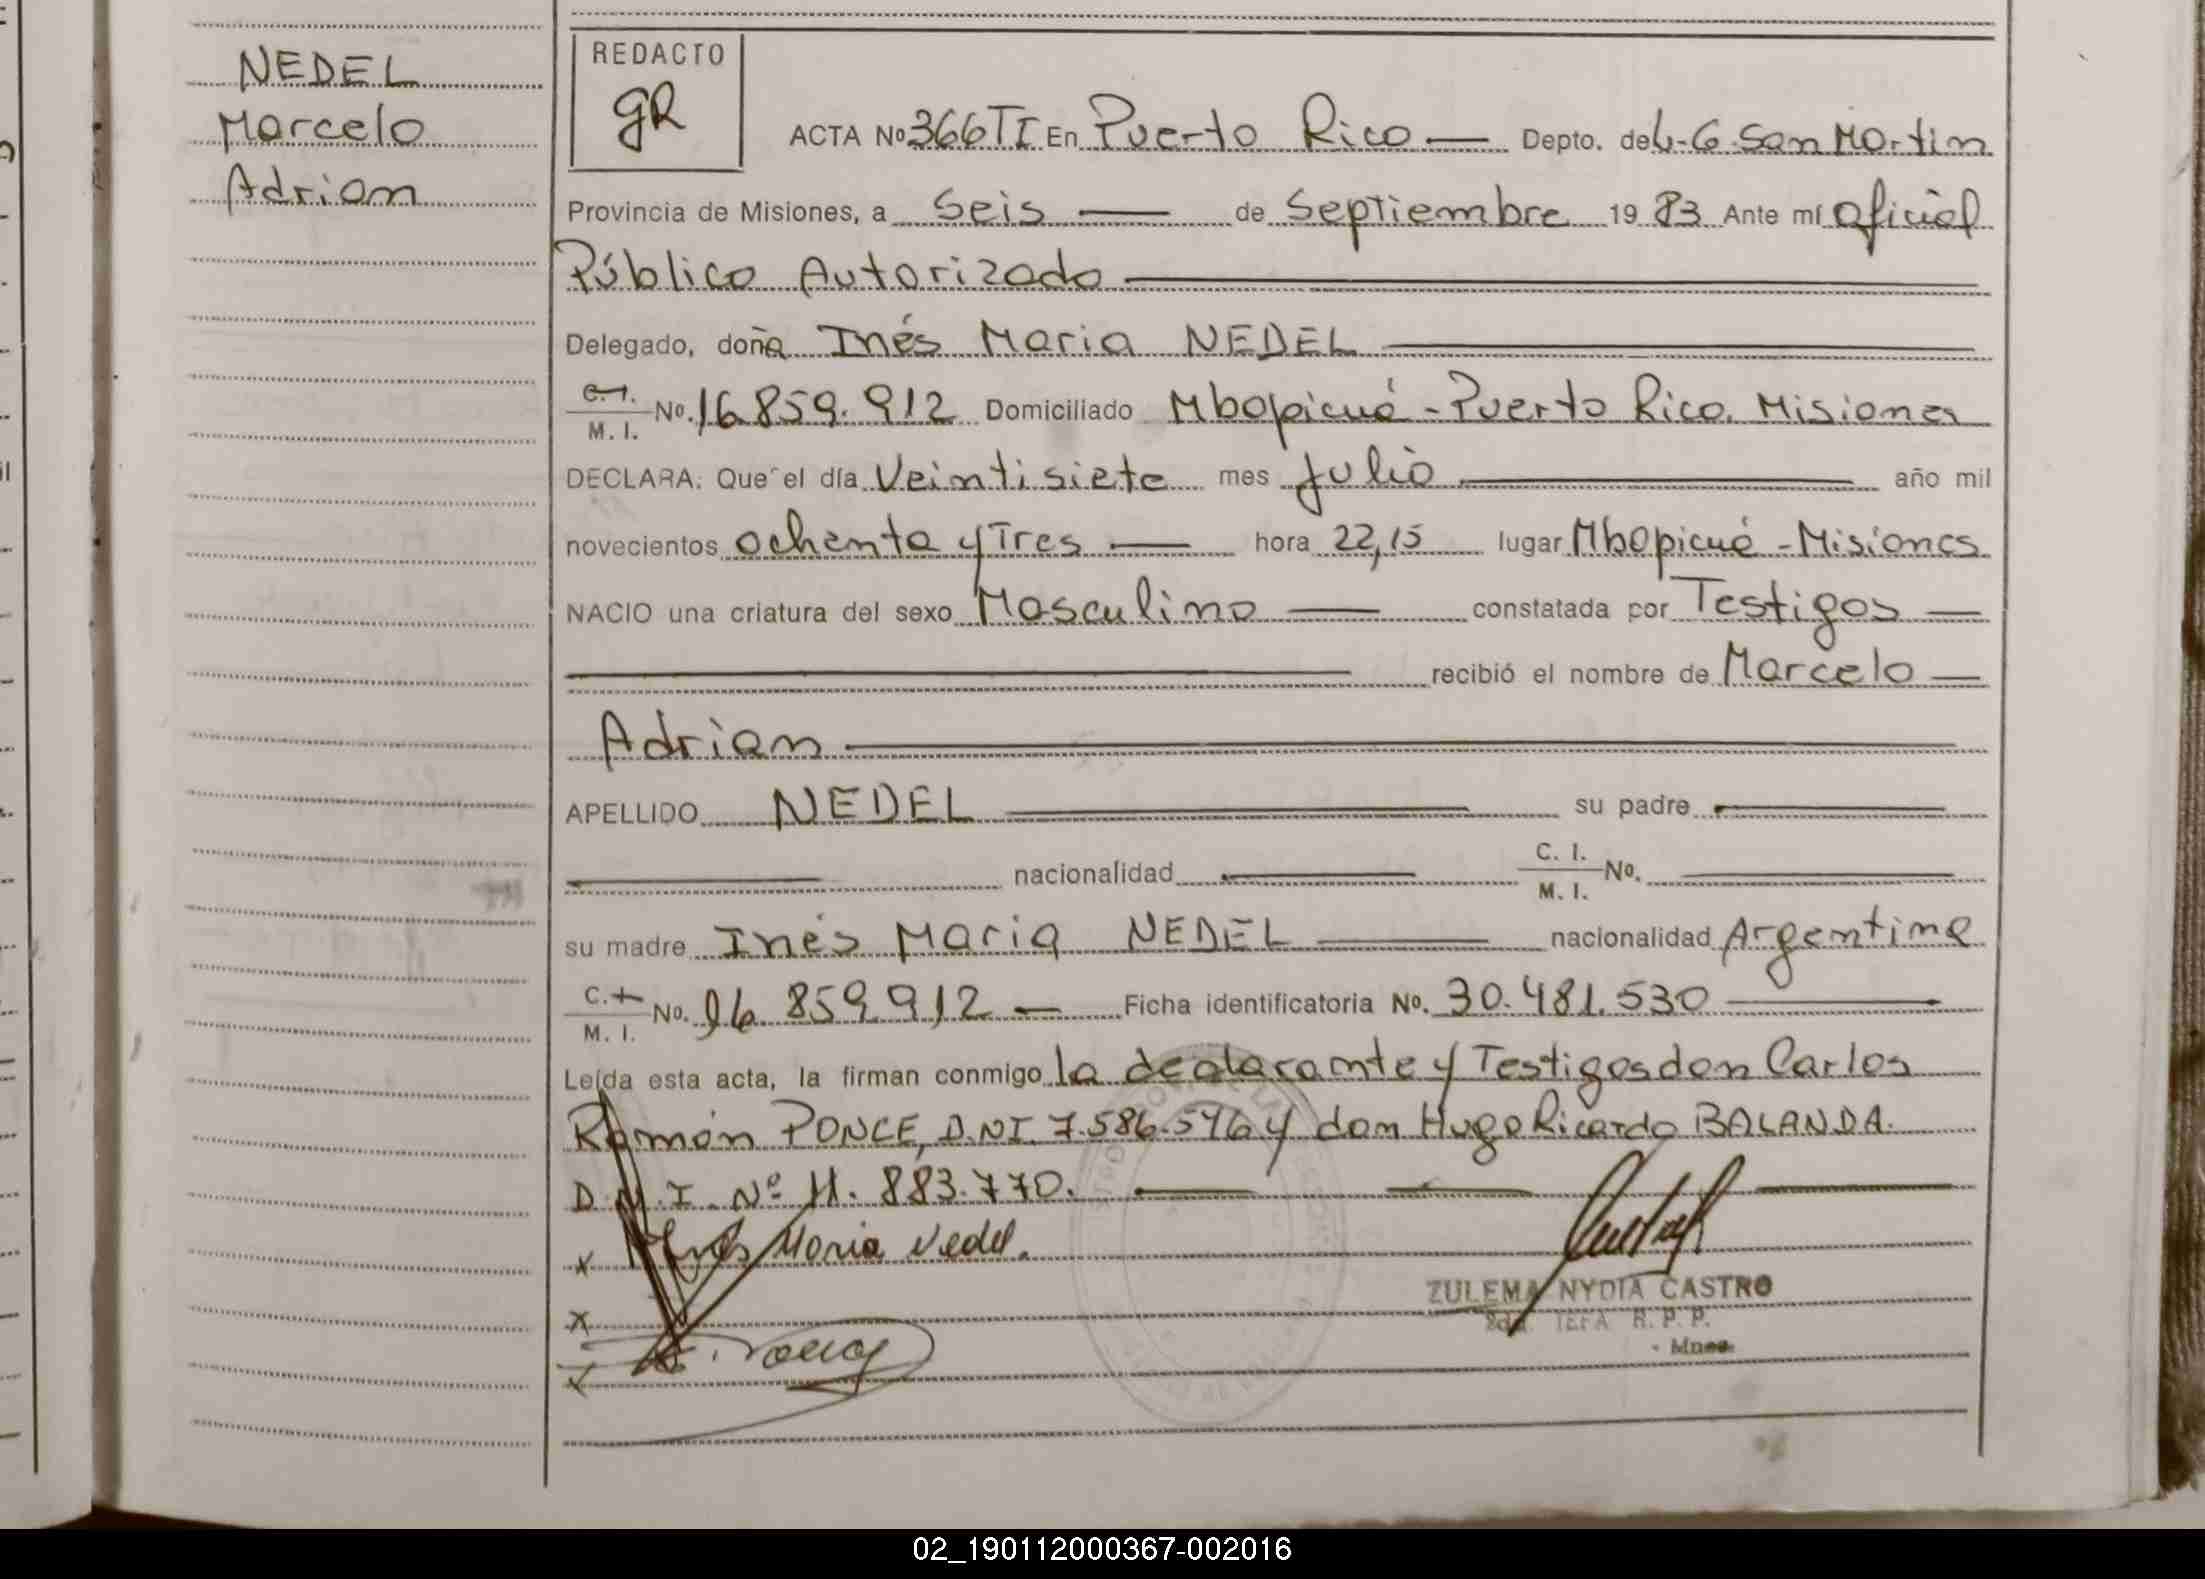 NEDEL
Marcelo
Adrian
REDACTO
gR
ACTA Nº 366 TI En Puerto Rico — Depto. de L-G. San Martin
Provincia de Misiones, a Seis — de Septiembre 19 83 Ante mí Oficial
Público Autorizado
Delegado, doña Inés Maria NEDEL
C.I. M. I. Nº. 16.859.912 Domiciliado Mbopicuá - Puerto Rico. Misiones
DECLARA: Que el día Veintisiete mes Julio año mil
novecientos ochenta y Tres — hora 22,15 lugar Mbopicuá - Misiones
NACIO una criatura del sexo Masculino — constatada por Testigos —
recibió el nombre de Marcelo —
Adrian
APELLIDO NEDEL su padre
nacionalidad C. I. M. I. Nº.
su madre Inés Maria NEDEL — nacionalidad Argentina
C.I. M. I. Nº. 16.859.912 — Ficha identificatoria Nº. 30.481.530
Leída esta acta, la firman conmigo la declarante y Testigos don Carlos
Ramón PONCE, D.N.I. 7.586.546 y don Hugo Ricardo BALANDA.
D.N.I. Nº 11.883.770.
x Inés Maria Nedel.
x
x
ZULEMA NYDIA CASTRO
2da. JEFA R. P. P.
- Mnes.
02_190112000367-002016